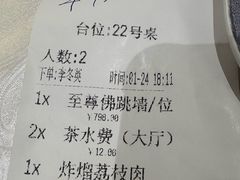 台位:22号桌
人数:2
下单:李冬英 时间:01-24 18:11
1x 至尊佛跳墙/位
￥798.00
2x 茶水费（大厅）
￥12.00
1x 炸熘荔枝肉